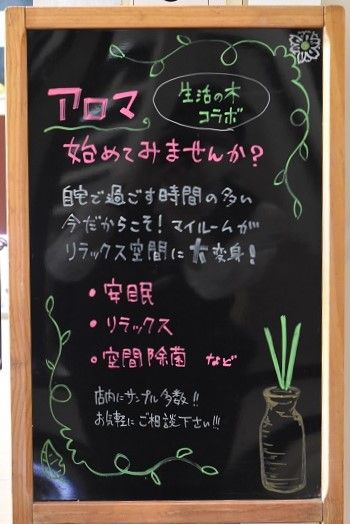 アロマ
生活の木
コラボ
始めてみませんか?
自宅で過ごす時間の多い
今だからこそ!マイルームが
リラックス空間に大変身!
・安眠
・リラックス
・空間除菌 など
店内にサンプル多数!!
お気軽にご相談下さい!!!